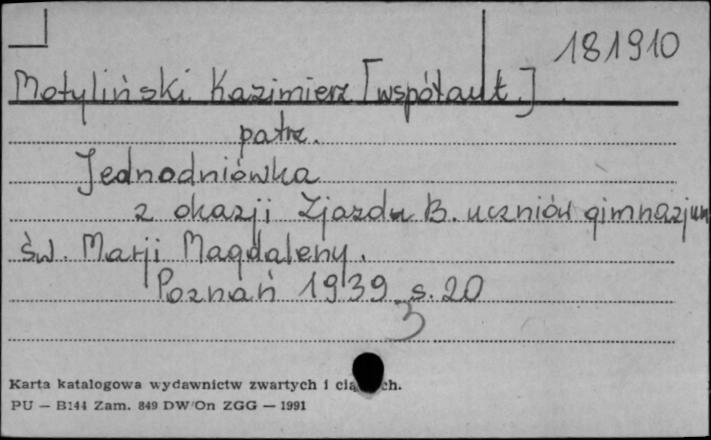 181910
Motyliński Kazimierz [współaut.]
patrz.
Jednodniówka
z okazji Zjazdu B. uczniów gimnazjum
św. Marji Magdaleny.
Poznań 1939 s. 20
3
Karta katalogowa wydawnictw zwartych i ch.
PU — B144 Zam. 849 DW/On ZGG — 1991